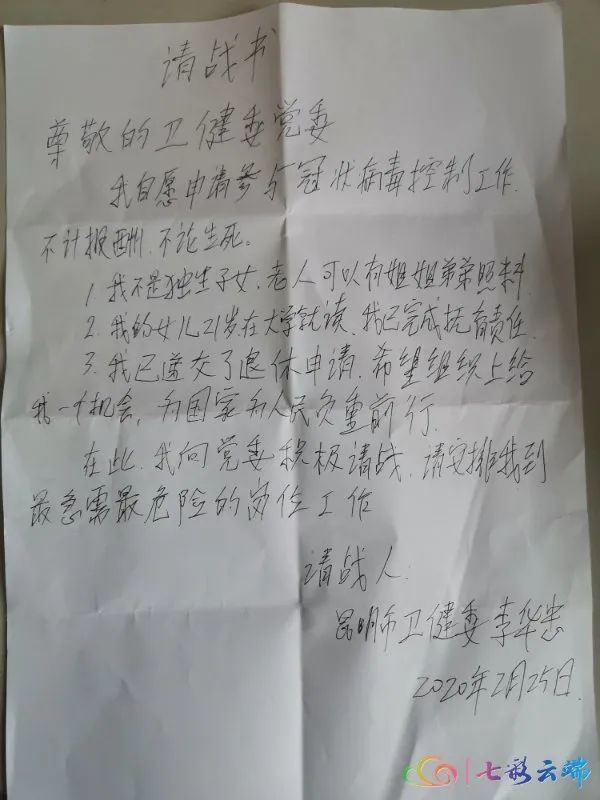 请战书
尊敬的卫健委党委
我自愿申请参与冠状病毒控制工作.
不计报酬.不论生死。
1.我不是独生子女.老人可以有姐姐弟弟照料.
2.我的女儿21岁在大学就读.我已完成抚育责任.
3.我已递交了退休申请.希望组织上给
我一个机会,为国家为人民负重前行.
在此.我向党委积极请战.请安排我到
最急需最危险的岗位工作
请战人:
昆明市卫健委李华忠
2020年2月25日.
七彩云端